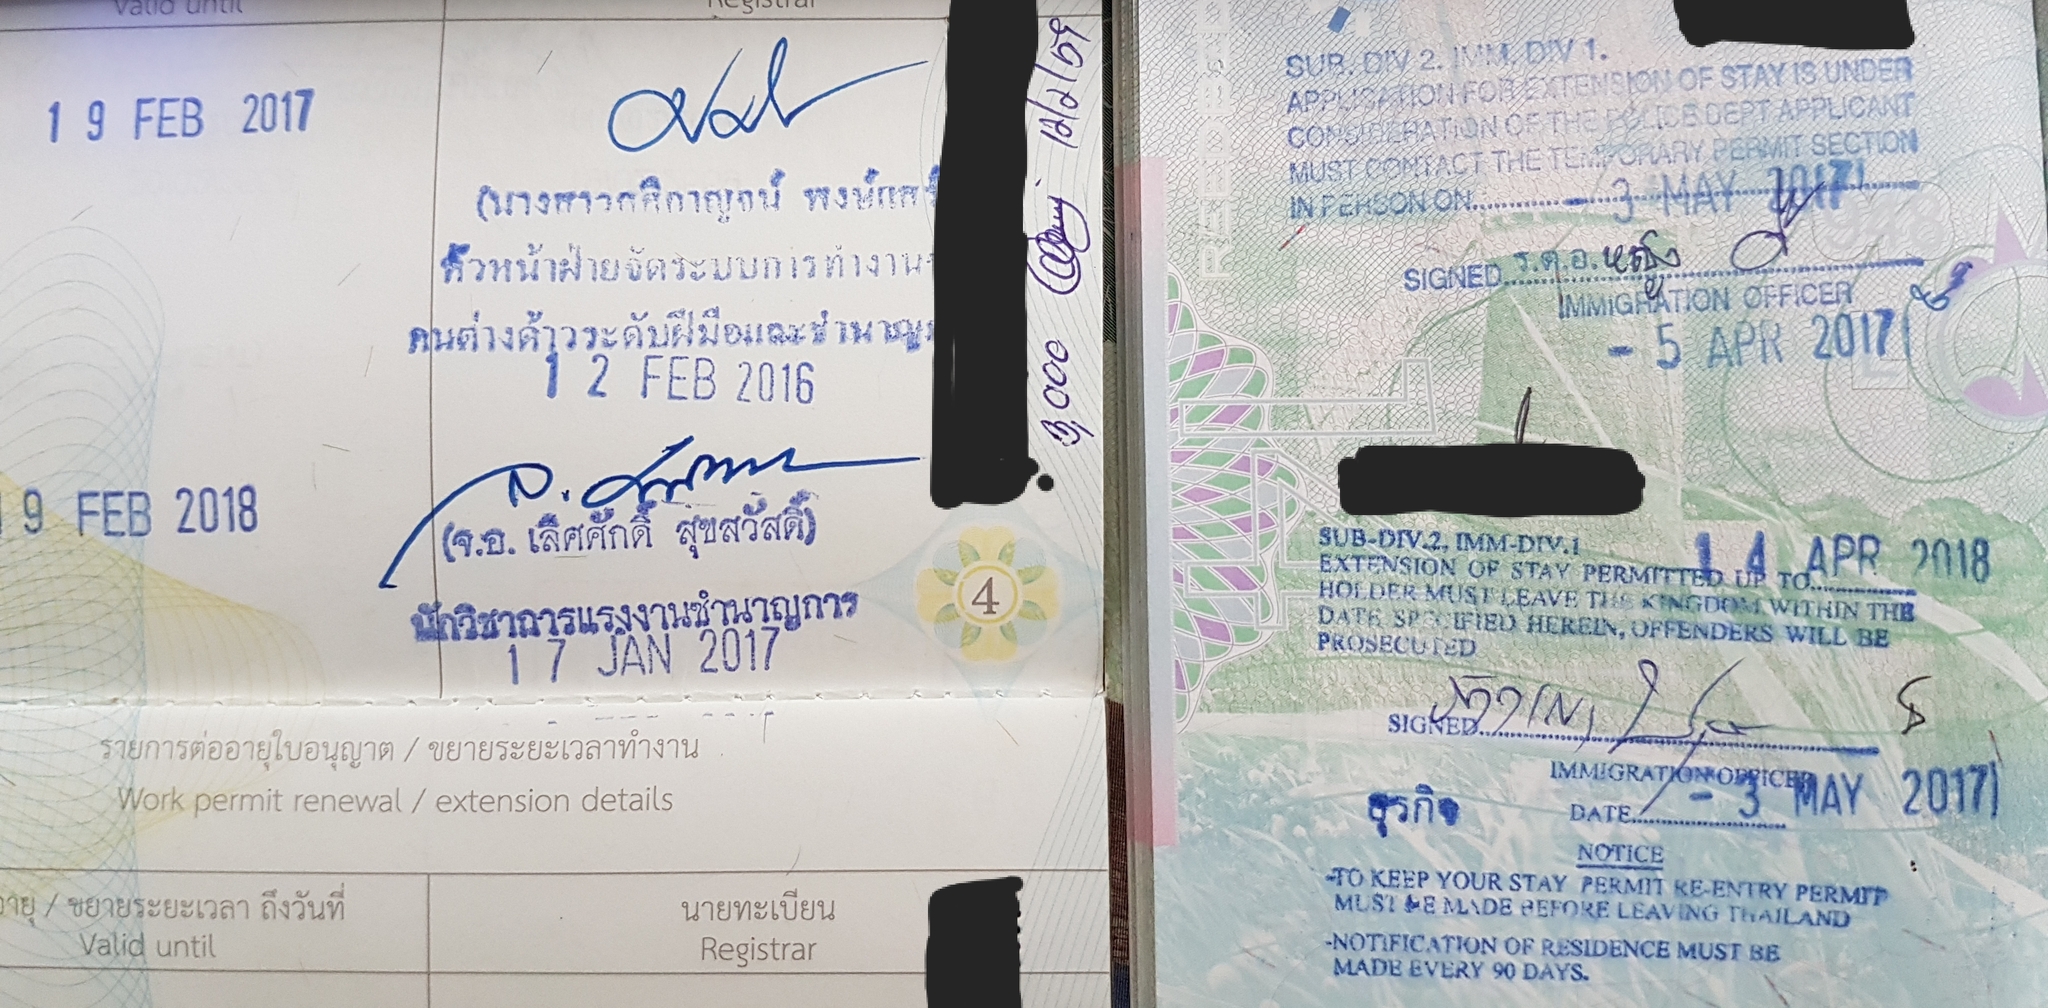 Valid until
Registrar
19 FEB 2017
หัวหน้าฝ่ายจัดระบบการทำงาน
คนต่างด้าวระดับฝีมือและชำนาญ
12 FEB 2016
3,000
12/2/59
19 FEB 2018
(จ.อ. เลิศศักดิ์ สุขสวัสดิ์)
นักวิชาการแรงงานชำนาญการ
17 JAN 2017
4
รายการต่ออายุใบอนุญาต / ขยายระยะเวลาทำงาน
Work permit renewal / extension details
อายุ / ขยายระยะเวลา ถึงวันที่
นายทะเบียน
Valid until
Registrar
SUB. DIV 2. IMM. DIV 1.
APPLICATION FOR EXTENSION OF STAY IS UNDER
CONSIDERATION OF THE POLICE DEPT APPLICANT
MUST CONTACT THE TEMPORARY PERMIT SECTION
IN PERSON ON - 3 MAY 2017
SIGNED ร.ต.อ.
IMMIGRATION OFFICER
- 5 APR 2017
SUB-DIV.2, IMM-DIV.1
EXTENSION OF STAY PERMITTED UP TO 14 APR 2018
HOLDER MUST LEAVE THE KINGDOM WITHIN THE
DATE SPECIFIED HEREIN, OFFENDERS WILL BE
PROSECUTED
SIGNED
IMMIGRATION OFFICER
ธุรกิจ
DATE - 3 MAY 2017
NOTICE
-TO KEEP YOUR STAY PERMIT RE-ENTRY PERMIT
MUST BE MADE BEFORE LEAVING THAILAND
-NOTIFICATION OF RESIDENCE MUST BE
MADE EVERY 90 DAYS.